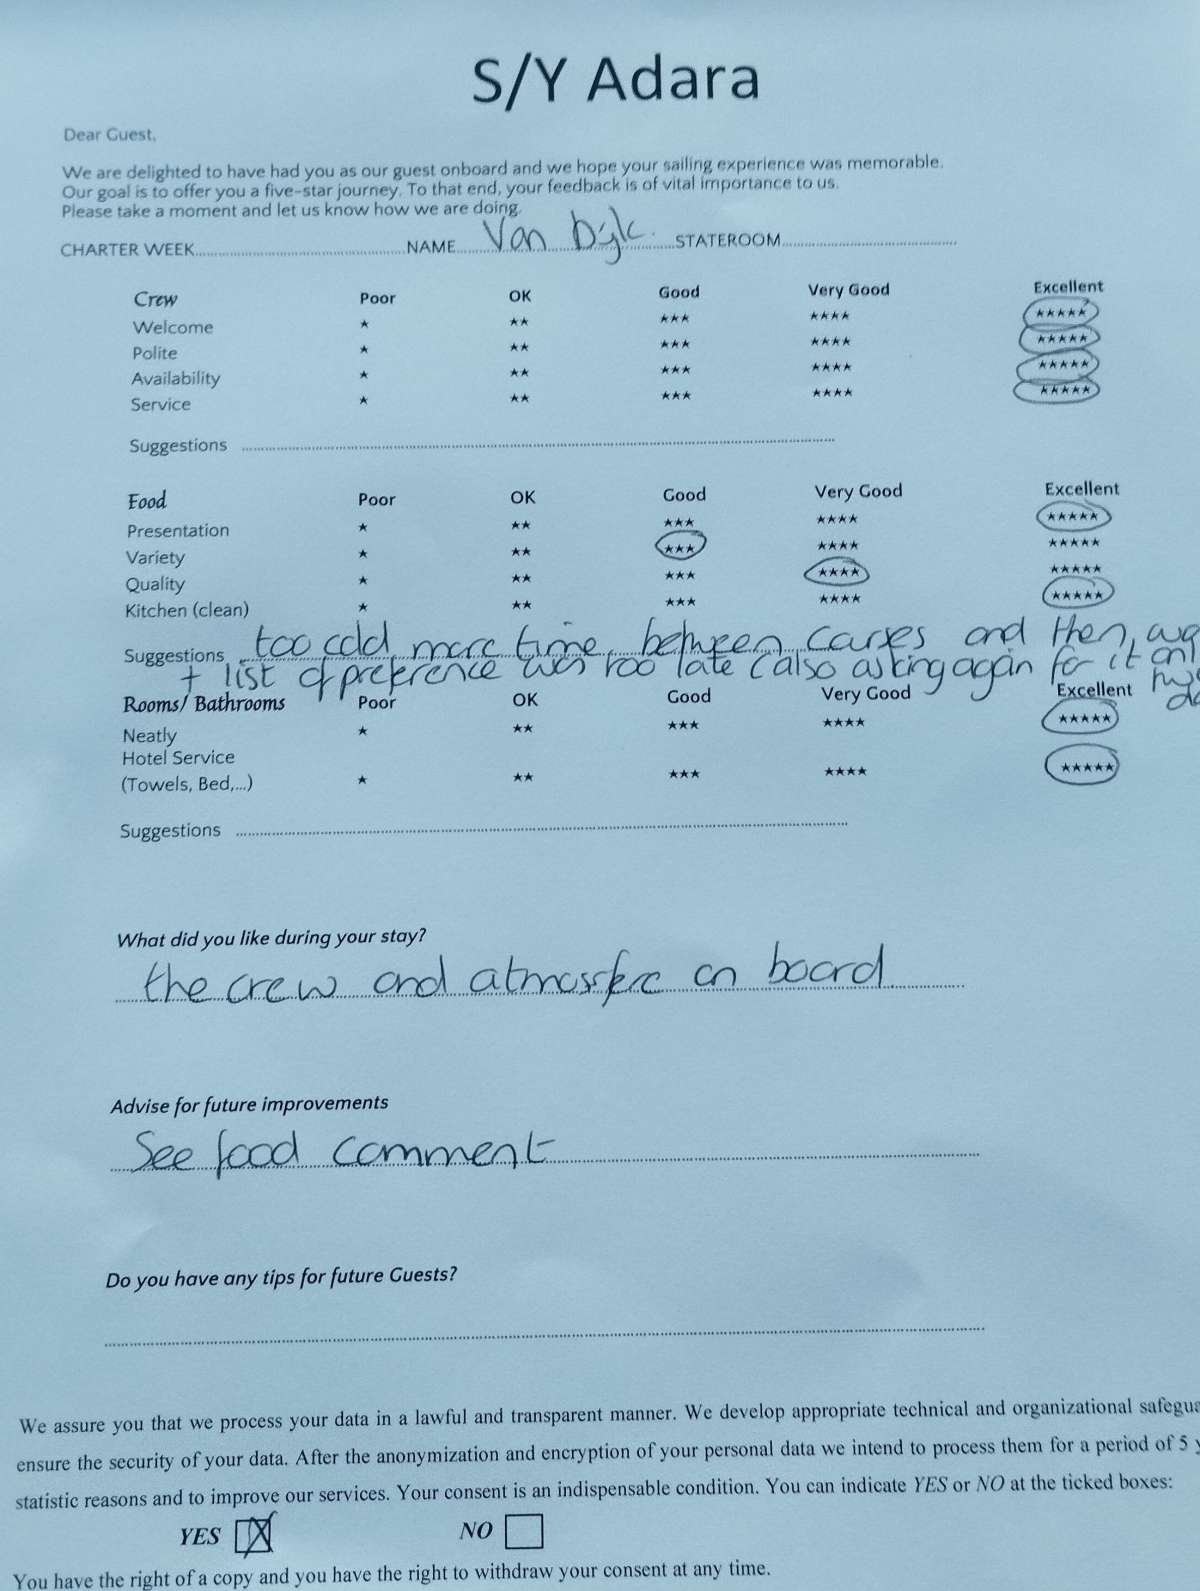 S/Y Adara
Dear Guest,
We are delighted to have had you as our guest onboard and we hope your sailing experience was memorable.
Our goal is to offer you a five-star journey. To that end, your feedback is of vital importance to us.
Please take a moment and let us know how we are doing.
CHARTER WEEK NAME Van Dijk. STATEROOM
Crew Poor OK Good Very Good Excellent
Welcome ★ ★★ ★★★ ★★★★ ★★★★★
Polite ★ ★★ ★★★ ★★★★ ★★★★★
Availability ★ ★★ ★★★ ★★★★ ★★★★★
Service ★ ★★ ★★★ ★★★★ ★★★★★
Suggestions
Food Poor OK Good Very Good Excellent
Presentation ★ ★★ ★★★ ★★★★ ★★★★★
Variety ★ ★★ ★★★ ★★★★ ★★★★★
Quality ★ ★★ ★★★ ★★★★ ★★★★★
Kitchen (clean) ★ ★★ ★★★ ★★★★ ★★★★★
Suggestions too cold, more time between courses and then
+ list of preference was too late (also asking again for it
Rooms/ Bathrooms Poor OK Good Very Good Excellent
Neatly ★ ★★ ★★★ ★★★★ ★★★★★
Hotel Service
(Towels, Bed,...) ★ ★★ ★★★ ★★★★ ★★★★★
Suggestions
What did you like during your stay?
the crew and atmosfere on board
Advise for future improvements
See food comment
Do you have any tips for future Guests?
We assure you that we process your data in a lawful and transparent manner. We develop appropriate technical and organizational safegua
ensure the security of your data. After the anonymization and encryption of your personal data we intend to process them for a period of 5 y
statistic reasons and to improve our services. Your consent is an indispensable condition. You can indicate YES or NO at the ticked boxes:
YES NO
You have the right of a copy and you have the right to withdraw your consent at any time.